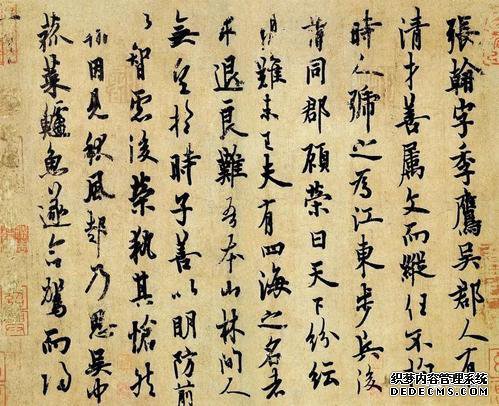 張翰字季鷹吳郡人有
清才善屬文而縱任不拘
時人號之為江東步兵後
謂同郡顧榮曰天下紛紜
禍難未已夫有四海之名者
求退良難吾本山林間人
無望於時子善以明防前
以智慮後榮執其愴然
翰因見秋風起乃思吳中
菰菜鱸魚遂命駕而歸
织梦内容管理系统
DEDECMS.COM